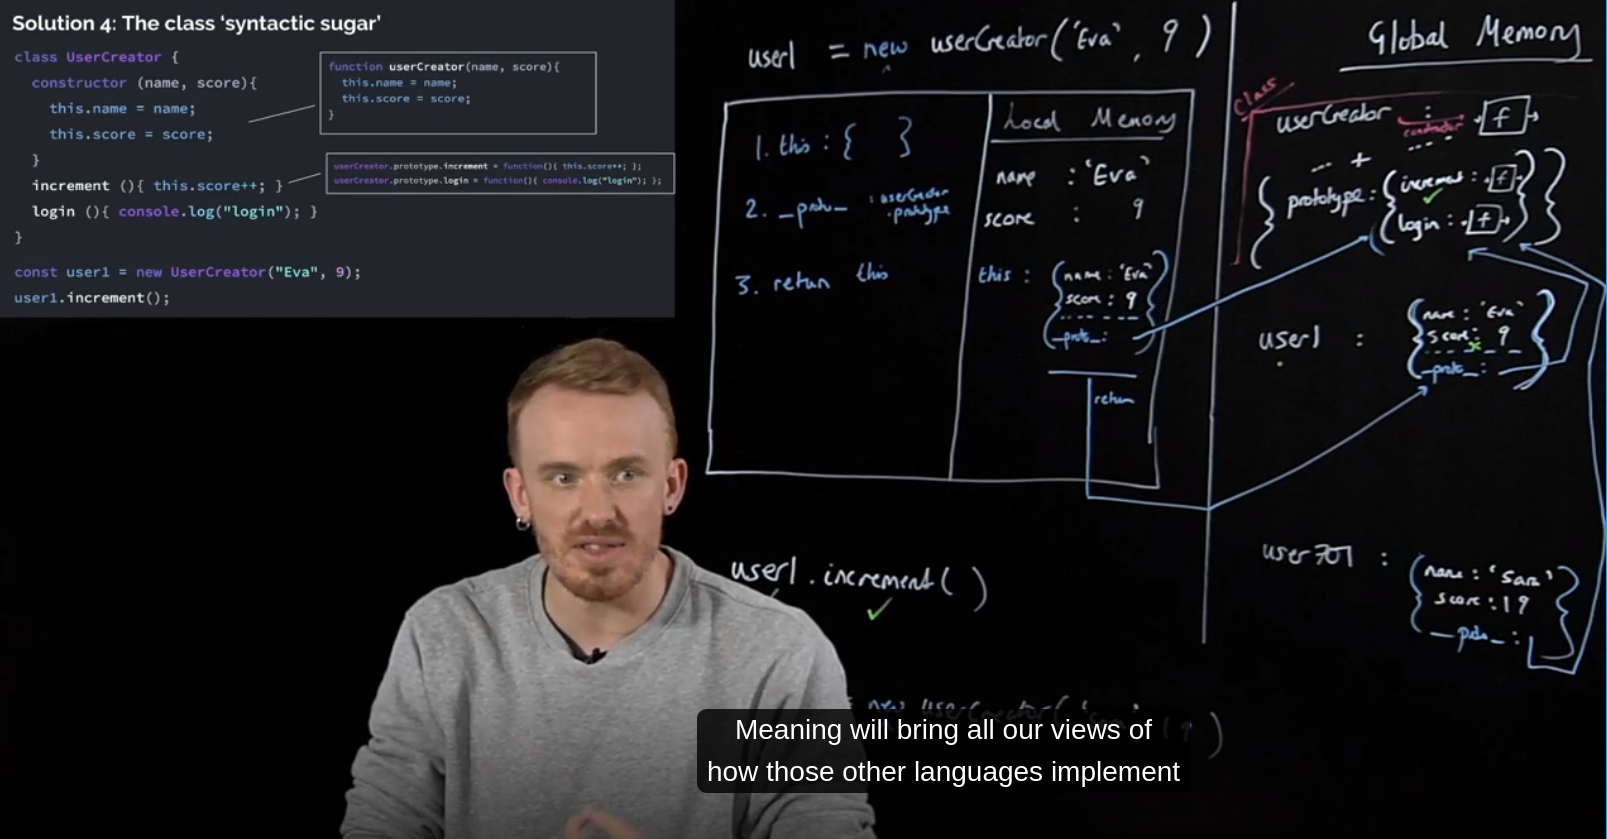 Solution 4: The class ‘syntactic sugar’
class UserCreator {
constructor (name, score){
this.name = name;
this.score = score;
}
increment (){ this.score++; }
login (){ console.log("login"); }
}
const user1 = new UserCreator("Eva", 9);
user1.increment();
function userCreator(name, score){
this.name = name;
this.score = score;
}
userCreator.prototype.increment = function(){ this.score++; };
userCreator.prototype.login = function(){ console.log("login"); };
user1 = new userCreator('Eva', 9)
1. this : { }
2. __proto__ : userCreator
.prototype
3. return this
Local Memory
name : 'Eva'
score : 9
this : { name : 'Eva'
score : 9
__proto__ : }
return
Global Memory
Class
userCreator : f
constructor
+
{ prototype : { increment : f } }
login : f
user1 : { name : 'Eva'
score : 9
__proto__ : }
user701 : { name : 'Sam'
score : 19
__proto__ : }
user1.increment()
new userCreator(
Meaning will bring all our views of
how those other languages implement